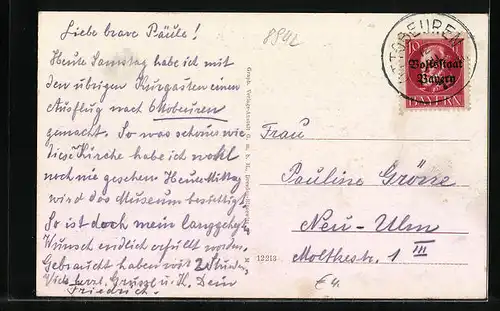 Liebe brave Päule!
Heute Samstag habe ich mit
den übrigen Kurgästen einen
Ausflug nach Ottobeuren
gemacht. So was schönes wie
diese Kirche habe ich wohl
noch nie gesehen Heute Mittag
wird das Museum besichtigt.
So ist doch mein langgehegter
Wunsch endlich erfüllt worden.
Gebraucht haben wir 2 Stunden
Viele herzl. Grüsse u. K. Dein
Friedrich.
8942
Graph. Verlags-Anstalt G. m. b. H.,
12213
OTTOBEUREN
10
Volksstaat
Bayern
BAYERN
Frau
Pauline Gröne
Neu-Ulm
Moltkestr. 1 III
€4